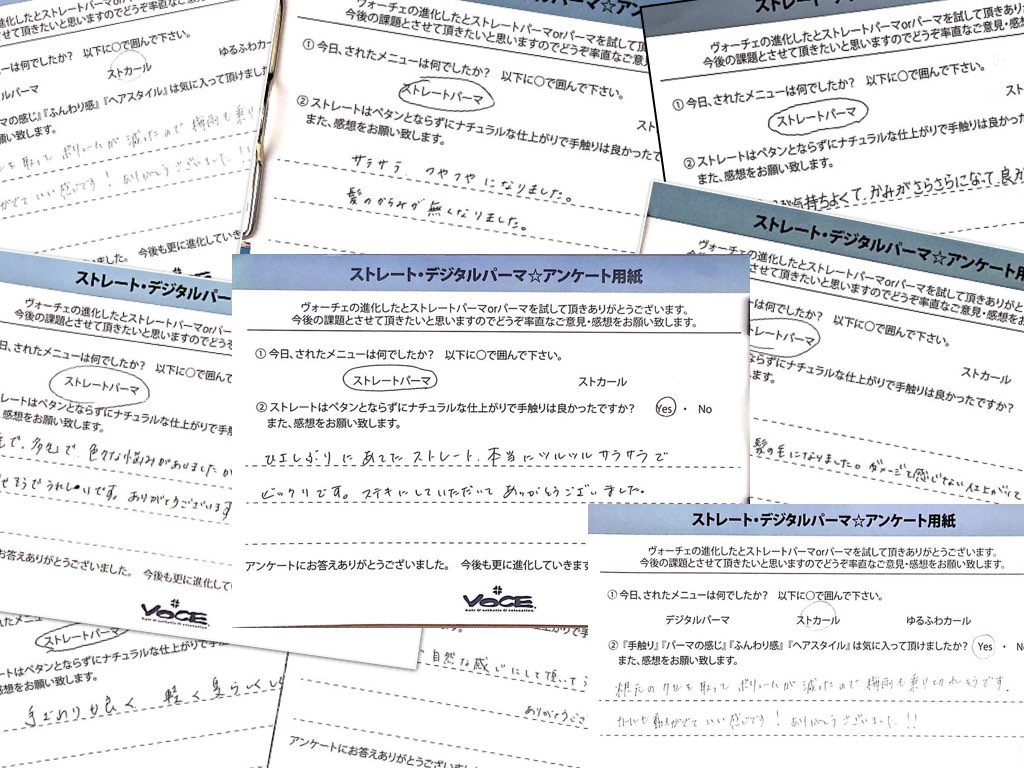 ューは何でしたか? 以下に○で囲んで下さい。
ストカール
ゆるふわカール
ルパーマ
マの感じ』『ふんわり感』『ヘアスタイル』は気に入って頂けました
願い致します。
取って ボリュームが 減ったので 梅雨も乗り
いい感じです! ありがとうございました!!
ました。 今後も更に進化していき
ヴォーチェの進化したとストレートパーマorパーマを試して頂き
今後の課題とさせて頂きたいと思いますのでどうぞ率直なご意
① 今日、されたメニューは何でしたか? 以下に○で囲んで下さい。
ストレートパーマ
② ストレートはペタンとならずにナチュラルな仕上がりで手触りは良かったで
また、感想をお願い致します。
サラサラ、つやつやになりました。
髪のからみが無くなりました。
ヴォーチェの進化したとストレートパーマorパーマを試して頂きあ
今後の課題とさせて頂きたいと思いますのでどうぞ率直なご意見・
① 今日、されたメニューは何でしたか? 以下に○で囲んで下さい。
ストレートパーマ
スト
② ストレートはペタンとならずにナチュラルな仕上がりで手触りは良か
また、感想をお願い致します。
気持ちよくて、かみがさらさらになて 良か
ストレート・デジタルパー
ヴォーチェの進化したとストレートパーマor
今後の課題とさせて頂きたいと思いますのでどうぞ
日、されたメニューは何でしたか? 以下に○で囲んで
ストレートパーマ
レートはペタンとならずにナチュラルな仕上がりで手
感想をお願い致します。
で、多毛で、色々な悩みがありましたが
せそうでうれしいです。ありがとうございます
お答えありがとうございました。 今後も更に進化してい
VOCE
hair & esthetic & relaxation
ストレート・デジタルパーマ☆アンケート用紙
ヴォーチェの進化したとストレートパーマorパーマを試して頂きありがとうございます。
今後の課題とさせて頂きたいと思いますのでどうぞ率直なご意見・感想をお願い致します。
① 今日、されたメニューは何でしたか? 以下に○で囲んで下さい。
ストレートパーマ
ストカール
② ストレートはペタンとならずにナチュラルな仕上がりで手触りは良かったですか? Yes ・ No
また、感想をお願い致します。
ひさしぶりに あてた ストレート、本当にツルツル サラサラで
ビックリです。ステキにしていただいて ありがとうございました。
アンケートにお答えありがとうございました。 今後も更に進化していきます
VOCE
hair & esthetic & relaxation
ストレート・デジタルパーマ☆アンケート用
ヴォーチェの進化したとストレートパーマorパーマを試して頂きありがと
課題とさせて頂きたいと思いますのでどうぞ率直なご意見・感想を
は何でしたか? 以下に○で囲んで下さい。
トパーマ
ストカール
ならずにナチュラルな仕上がりで手触りは良かったですか?
ます。
髪の毛になりました。ダメージを感じない仕上がりで
ストレート・デジタルパーマ☆アンケート用紙
ヴォーチェの進化したとストレートパーマorパーマを試して頂きありがとうございます。
今後の課題とさせて頂きたいと思いますのでどうぞ率直なご意見・感想をお願い致します。
① 今日、されたメニューは何でしたか? 以下に○で囲んで下さい。
デジタルパーマ
ストカール
ゆるふわカール
② 『手触り』『パーマの感じ』『ふんわり感』『ヘアスタイル』は気に入って頂けましたか? Yes ・ No
また、感想をお願い致します。
根元のクセも取って ボリュームが 減ったので 梅雨も乗り切れそうです。
いい感じです! ありがとうございました!!
ストレートパーマ
ートはペタンとならずにナチュラルな仕
感想をお願い致します。
手ざわりも良く 軽く
自然な感じにして頂いて
ありがとうござ
アンケートにお答えありがとうございました。